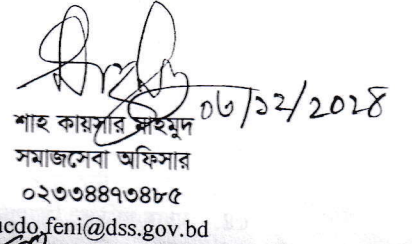 ০৩/১২/২০২৪
শাহ কায়সার মাহমুদ
সমাজসেবা অফিসার
০২৩৩৪৪৭৩৪৮৫
ucdo.feni@dss.gov.bd